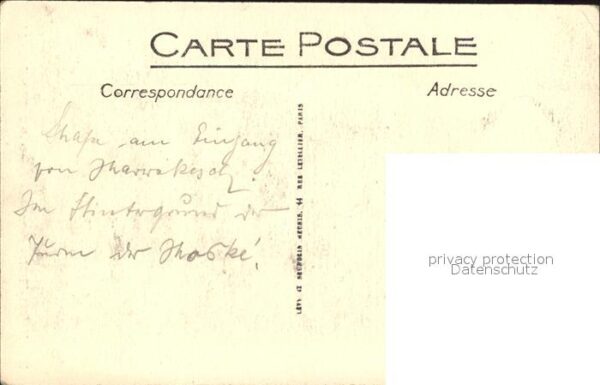 CARTE POSTALE
Correspondance
Adresse
am Eingang
von Marrakesch!
Im Hintergrund der
Turm der Moske!
LEVY ET NEURDEIN REUNIS, 44 RUE LETELLIER, PARIS
privacy protection
Datenschutz